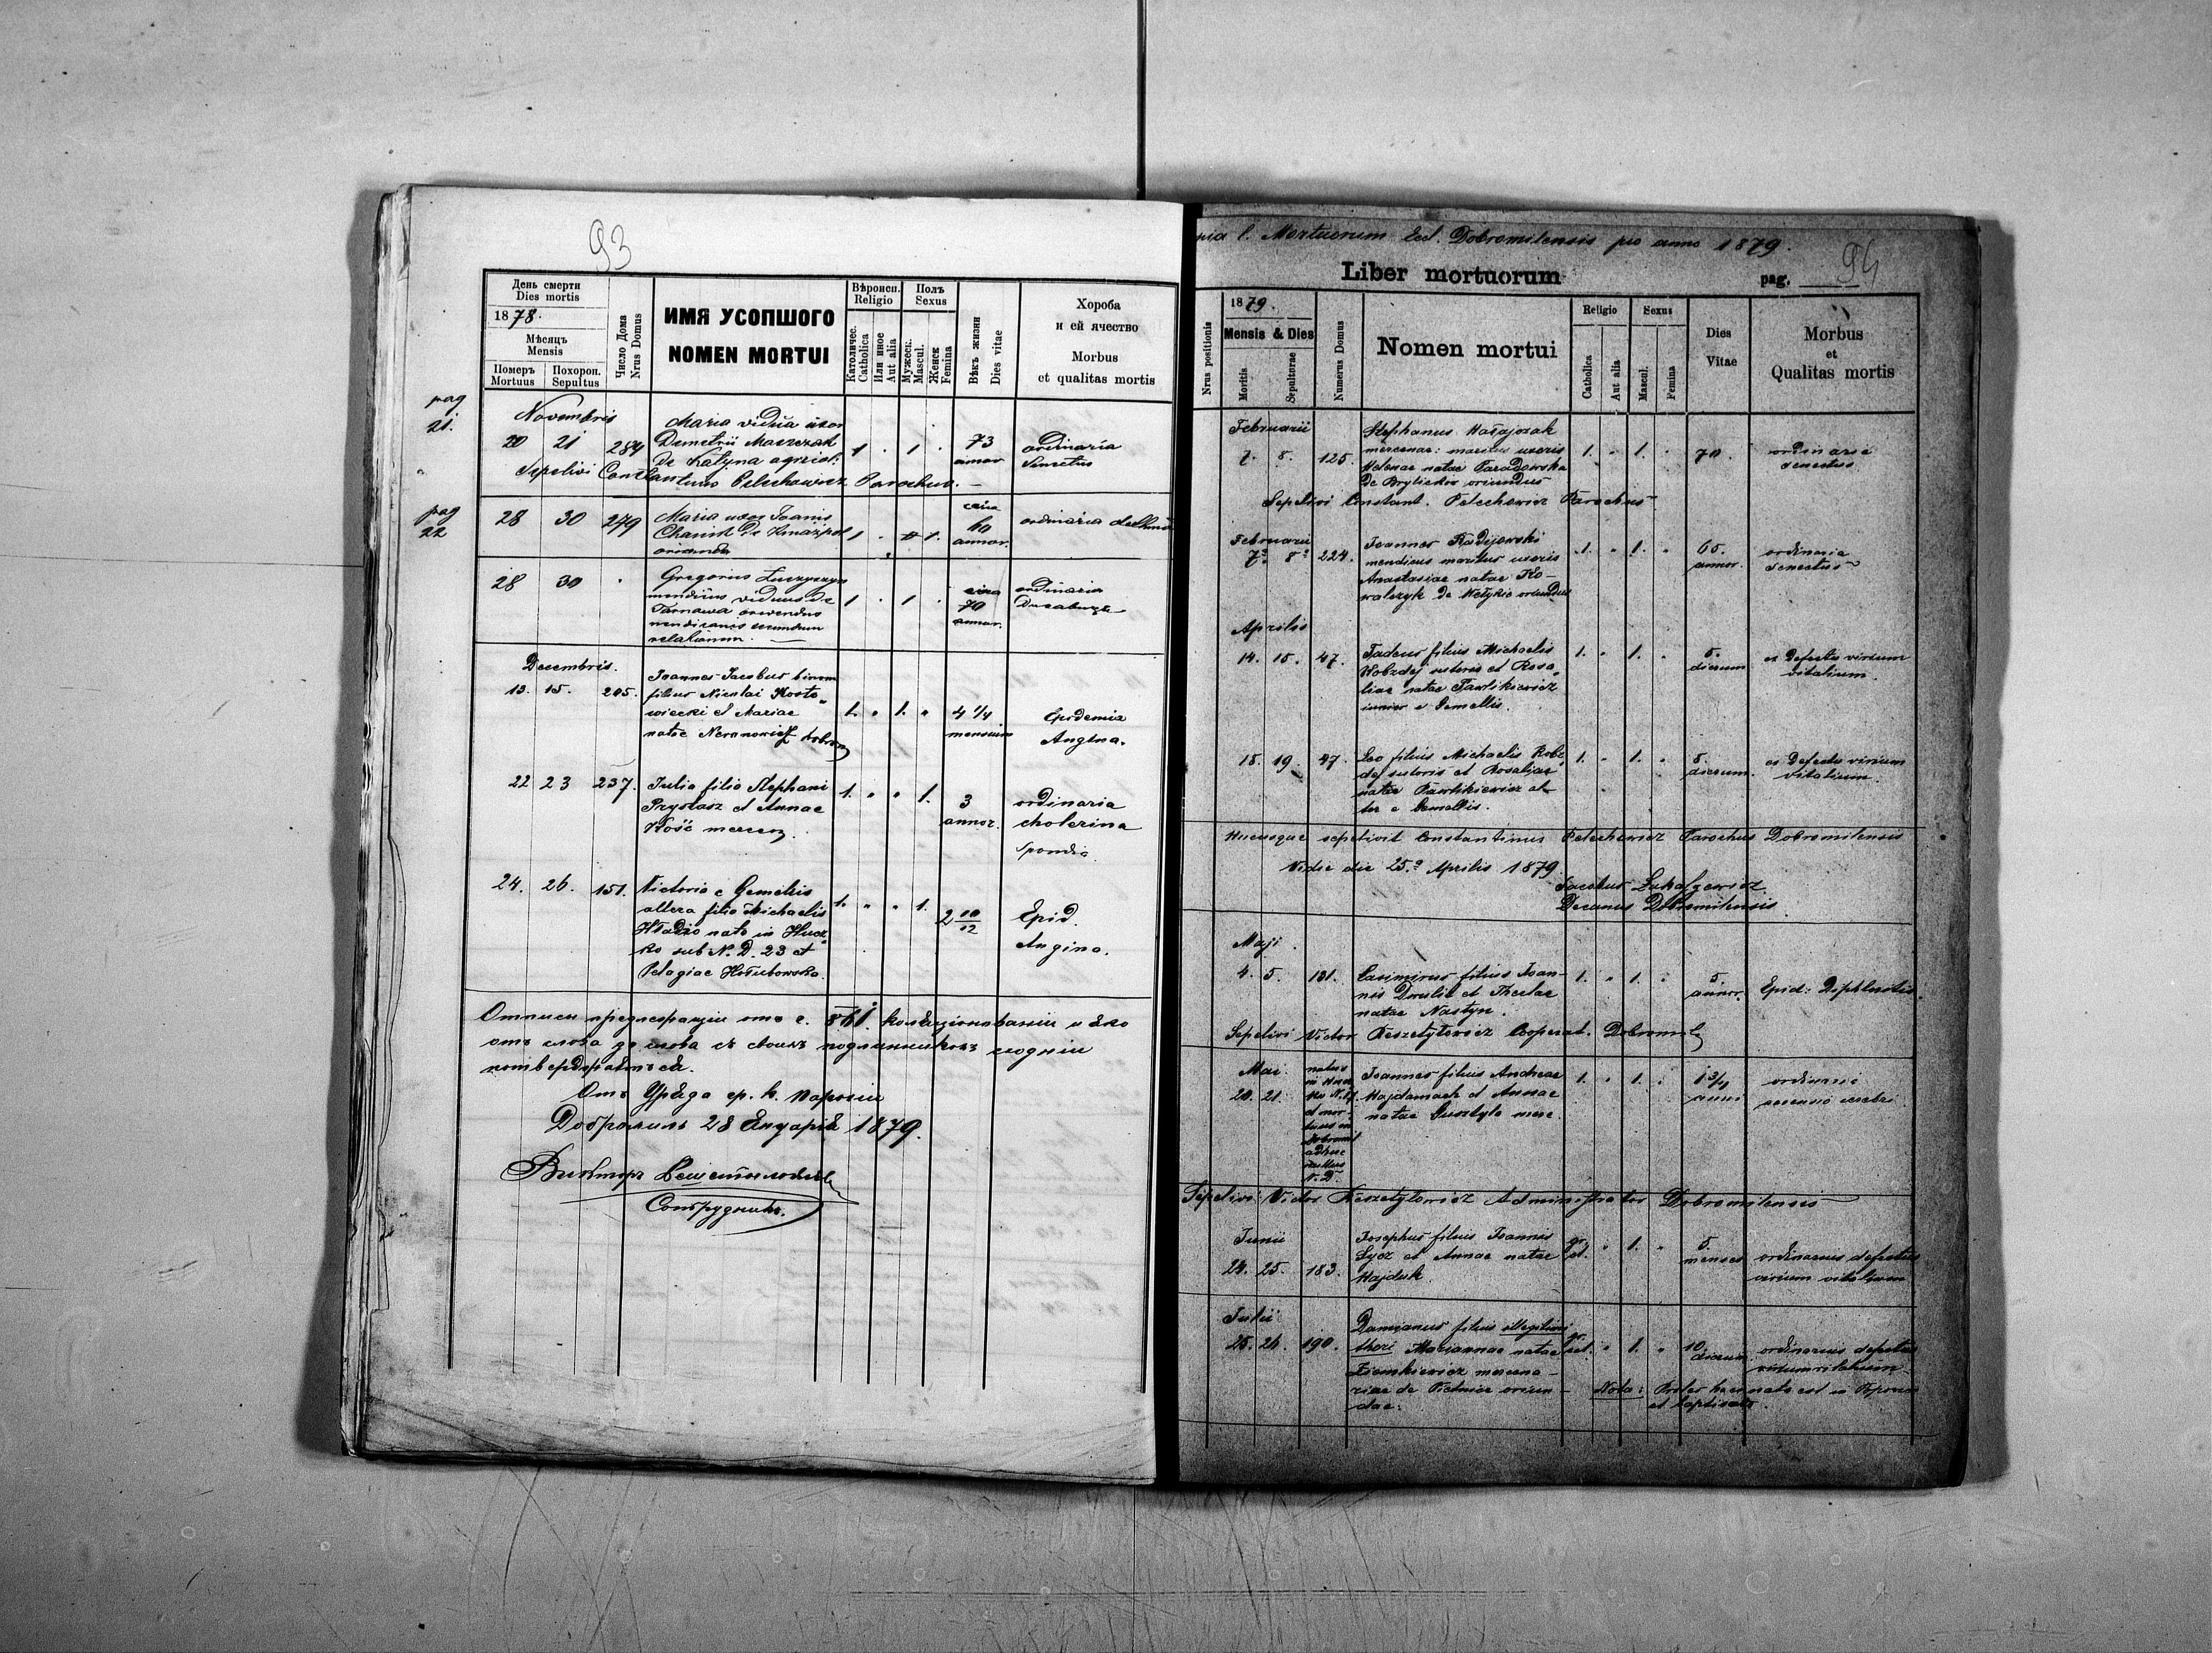 93
День смерти
Dies mortis
1878.
Мѣсяцъ
Mensis
Померъ
Mortuus
Похорон.
Sepultus
Число Дома
Nrus Domus
ИМЯ УСОПШОГО
NOMEN MORTUI
Вѣроисп.
Religio
Католичес.
Catholica
Или иное
Aut alia
Полъ
Sexus
Мужеск.
Mascul.
Женск
Femina
Вѣкъ жизни
Dies vitae
Хороба
и ей ячество
Morbus
et qualitas mortis
pag
21.
Novembris
20 21 284
Maria vidua uxor
Demetrii
de Katyna agricol:
1 . 1 .
73
annor
ordinaria
Senectus
Sepelivi Constantinus Pelechowicz Parochus.
pag
22
28 30 249
Maria uxor Joannis
de
orianda
1 . 1.
60
annor.
ordinaria
28 30
Gregorius
mendicus viduus de
Tarnawa oriundus
secundum
relationem.
1 . 1 .
circa
70
annor.
ordinaria
Decembris.
13. 15. 205.
Joannes Jacobus binom
filius Nicolai Kosto
wiecki et Mariae
natae
1. " 1. "
4 1/4
mensium
Epidemia
Angina.
22 23 237.
Julia filia Stephani
Przystasz et Annae
Kość mercen.
1. " " 1.
3
annor.
ordinaria
cholerina
24. 26. 151.
Victoria e Gemelis
altera filia Michaelis
nata in Hucz
ko sub N. D. 23 et
Pelagiae Hołubowska.
1. " " 1.
2 10/12
Epid.
Angina.
слова съ своимъ
Отъ Уряда гр. к. парохіи
Добромиль 28 Януарія 1879.
Викторъ
Сотрудникъ.
l. Mortuorum Eccl. Dobromilensis pro anno 1879.
Liber mortuorum
pag.
94
Nrus positionis
1879.
Mensis & Dies
Mortis
Sepulturae
Numerus Domus
Nomen mortui
Religio
Catholica
Aut alia
Sexus
Mascul.
Femina
Dies
Vitae
Morbus
et
Qualitas mortis
Februarii
7. 8. 125.
Stephanus
mercenar: maritus uxoris
Helenae natae
de oriundus
1. " 1. .
70.
ordinaria
senectus
Sepelivi Constant. Pelechowicz Parochus
Februarii
7. 8. 224.
Joannes Radijowski
mendicus maritus uxoris
Anastasiae natae Ko-
walczyk de oriundus
1. " 1. "
65.
annor.
ordinaria
senectus
Aprilis
14. 15. 47.
Tadeus filius Michaelis
Kobzdej sutoris et Rosa
liae natae Pawlikiewicz
iunior e Gemellis.
1. " 1. .
5.
dierum
ex Defectu virium
vitalium.
18. 19. 47.
Leo filius Michaelis Kobz
dej sutoris et Rosaliae
natae Pawlikiewicz al-
ter e Gemellis.
1. " 1. .
5.
dierum.
ex Defectu virium
vitalium.
Hucusque sepelivit Constantinus Pelechowicz Parochus Dobromilensis
Vidie die 25. Aprilis 1879
Jacobus
Decanus Dobromilensis
Maji
4. 5. 131.
Casimirus filius Joan-
nis et Theclae
natae Nastyn.
1. " 1. .
5.
annor.
Epid: Diphteritis.
Sepelivi Victor Reszetylowicz Cooperat. Dobromil
Mai
20. 21.
natus
in Hucz
ko
et mor-
tuus in
Dobromil
adhuc
nullus
N. D.
Joannes filius Andreae
Hajdamach et Annae
natae
1. " 1. .
1 3/4
anni
ordinaria
Sepelivi Victor Reszetylowicz Administrator Dobromilensis
Junii
24. 25. 183.
Josephus filius Joannis
Lycz et Annae natae
Hajduk.
" 1. "
5.
menses
ordinarius defectus
virium vitalium
Julii
25. 26. 190.
Damianus filius illegitimi
thori Mariannae natae
Ziemkiewicz mercena-
riae de oriun-
dae.
" 1. "
10.
dierum
ordinarius defectus
virium vitalium
Nota:
et baptisata.